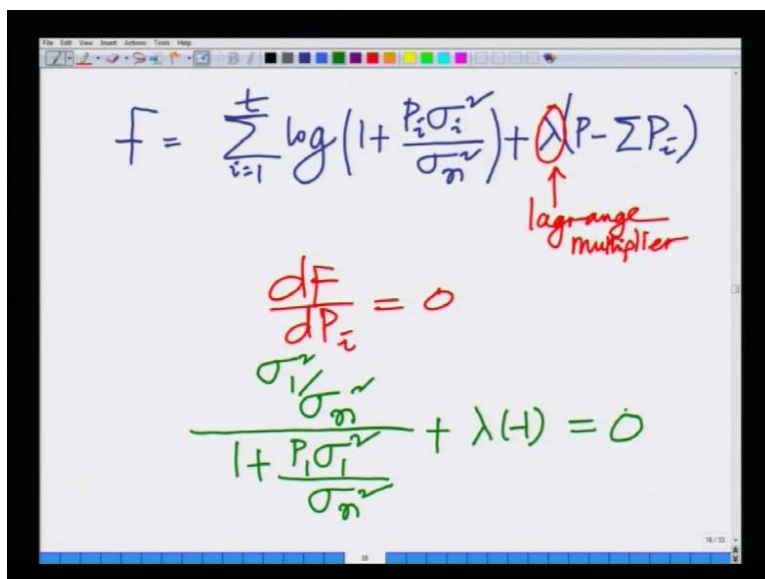 File Edit View Insert Actions Tools Help
f = \sum_{i=1}^{t} log(1 + \frac{P_i σ_i^2}{σ_n^2}) + λ(P - ΣP_i)
lagrange
multiplier
\frac{dF}{dP_i} = 0
\frac{σ_1^2/σ_n^2}{1 + \frac{P_1 σ_1^2}{σ_n^2}} + λ(-1) = 0
16